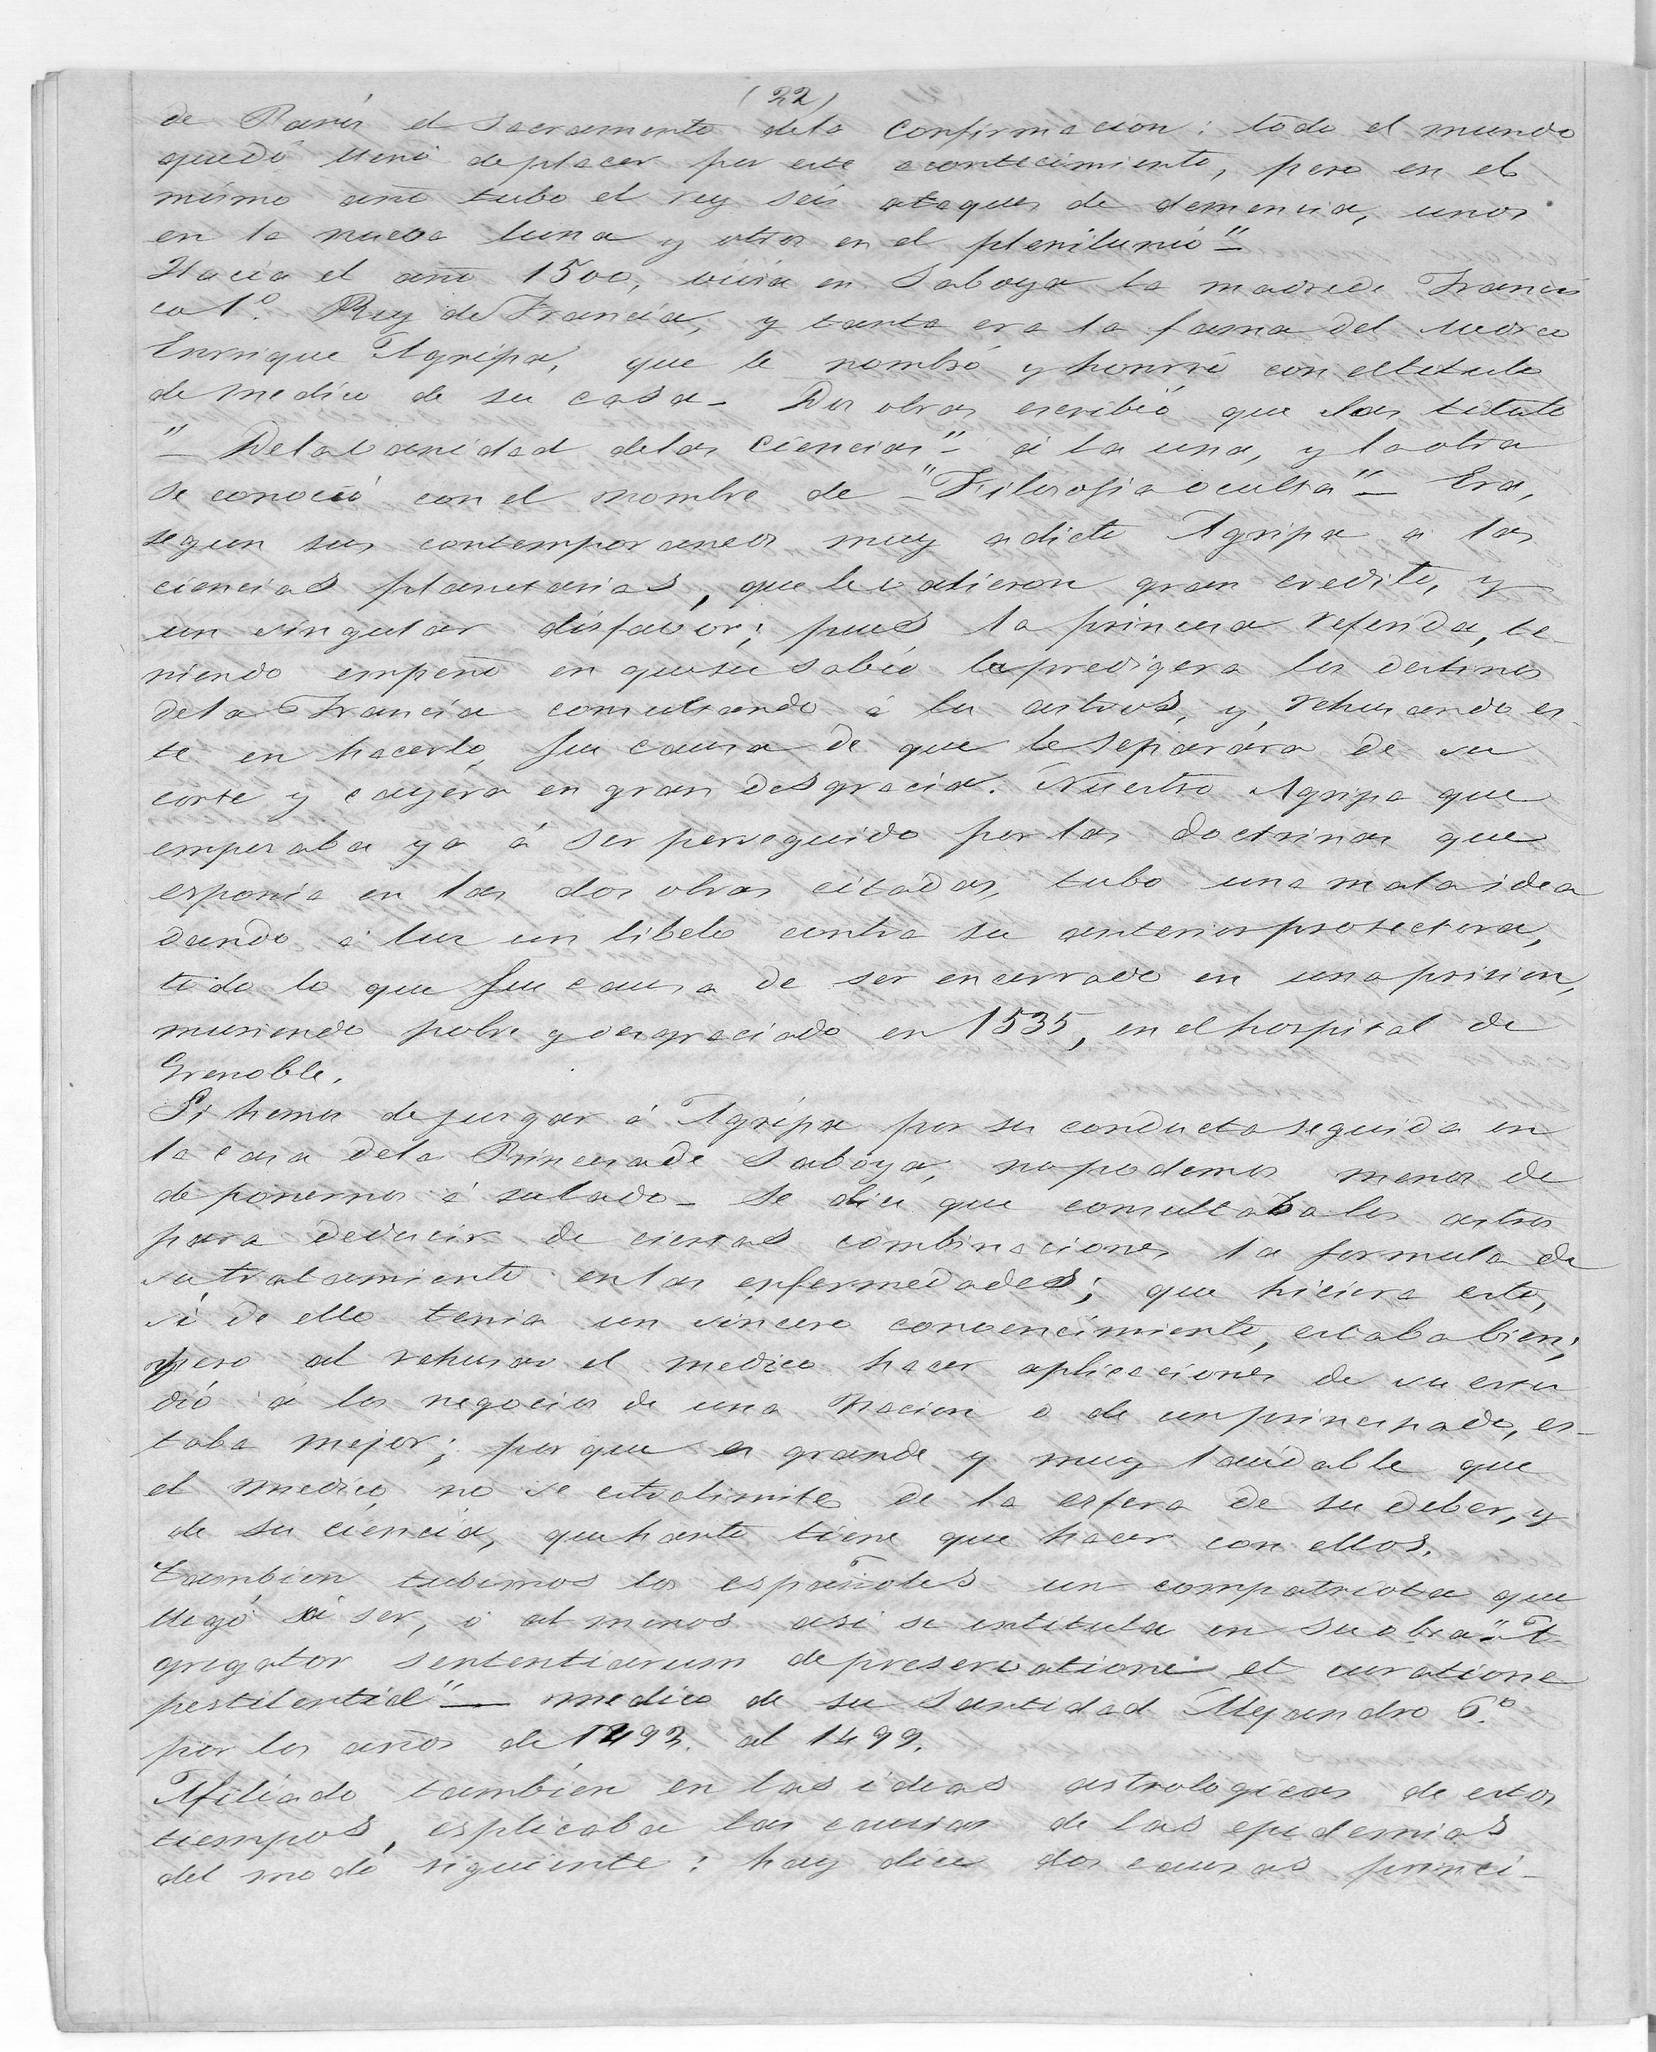 (22)
de Paris el sacramento dela confirmacion: todo el mundo
quedó lleno de placer por este acontecimiento, pero en el
mismo año tubo el rey seis ataques de demencia, unos
en la nueva luna y otros en el plenilunio"—
Hacia el año 1500, vivia en Saboya la madre de Francis
co 1º. Rey de Francia, y tanta era la fama del
Enrrique Agripa, que le nombró y honrró con el titulo
de medico de su casa— Dos obras escribió que las tituló
"— De la vanidad delas Ciencias"— á la una, y la otra
se conoció con el nombre de —"Filosofia oculta"— Era,
segun sus contemporaneos muy adicto Agripa a las
ciencias planetarias, que le valieron gran credito, y
un singular disfavor; pues la princesa referida, te-
niendo empeño en que su sabio la predigera los destinos
dela Francia consultando á los astros, y, rehusando es-
te en hacerlo, fue causa de que le separára de su
corte y cayéra en gran desgracia. Nuestro Agripa que
empesaba ya á ser perseguido por las doctrinas que
esponia en las dos obras citadas, tubo una mala idea
dando á luz un libelo contra su anterior protectora,
todo lo que fue causa de ser encerrado en una prision,
muriendo pobre y desgraciado en 1535, en el hospital de
Grenoble.
Si hemos de jusgar á Agripa por su conducta seguida en
la casa dela Princesa de Saboya, no podemos menos de
de ponernos á su lado— Se dice que consultaba los astros
para deducir de ciertas combinaciones la formula de
su tratamiento en las enfermedades; que hiciera esto,
si de ello tenia un sincero convencimiento, estaba bien;
pero al rehusar el medico hacer aplicaciones de su estu
dio á los negocios de una Nacion o de un principado, es-
taba mejor; por que es grande y muy laudable que
el medico no se estralimite de la esfera de su deber, y
de su ciencia, que harto tiene que hacer con ellos.
Tambien tubimos los españoles un compatriota que
llegó á ser, ó al menos asi se intitula en su obra "— A-
gregator sententiarum de preservatione et curatione
pestilentiæ"— medico de su Santidad Alejandro 6º.
por los años de 1493. al 1499.
Afiliado tambien en las ideas astrologicas de estos
tiempos, esplicaba las causas de las epidemias
del modo siguiente: hay dice dos causas princi-